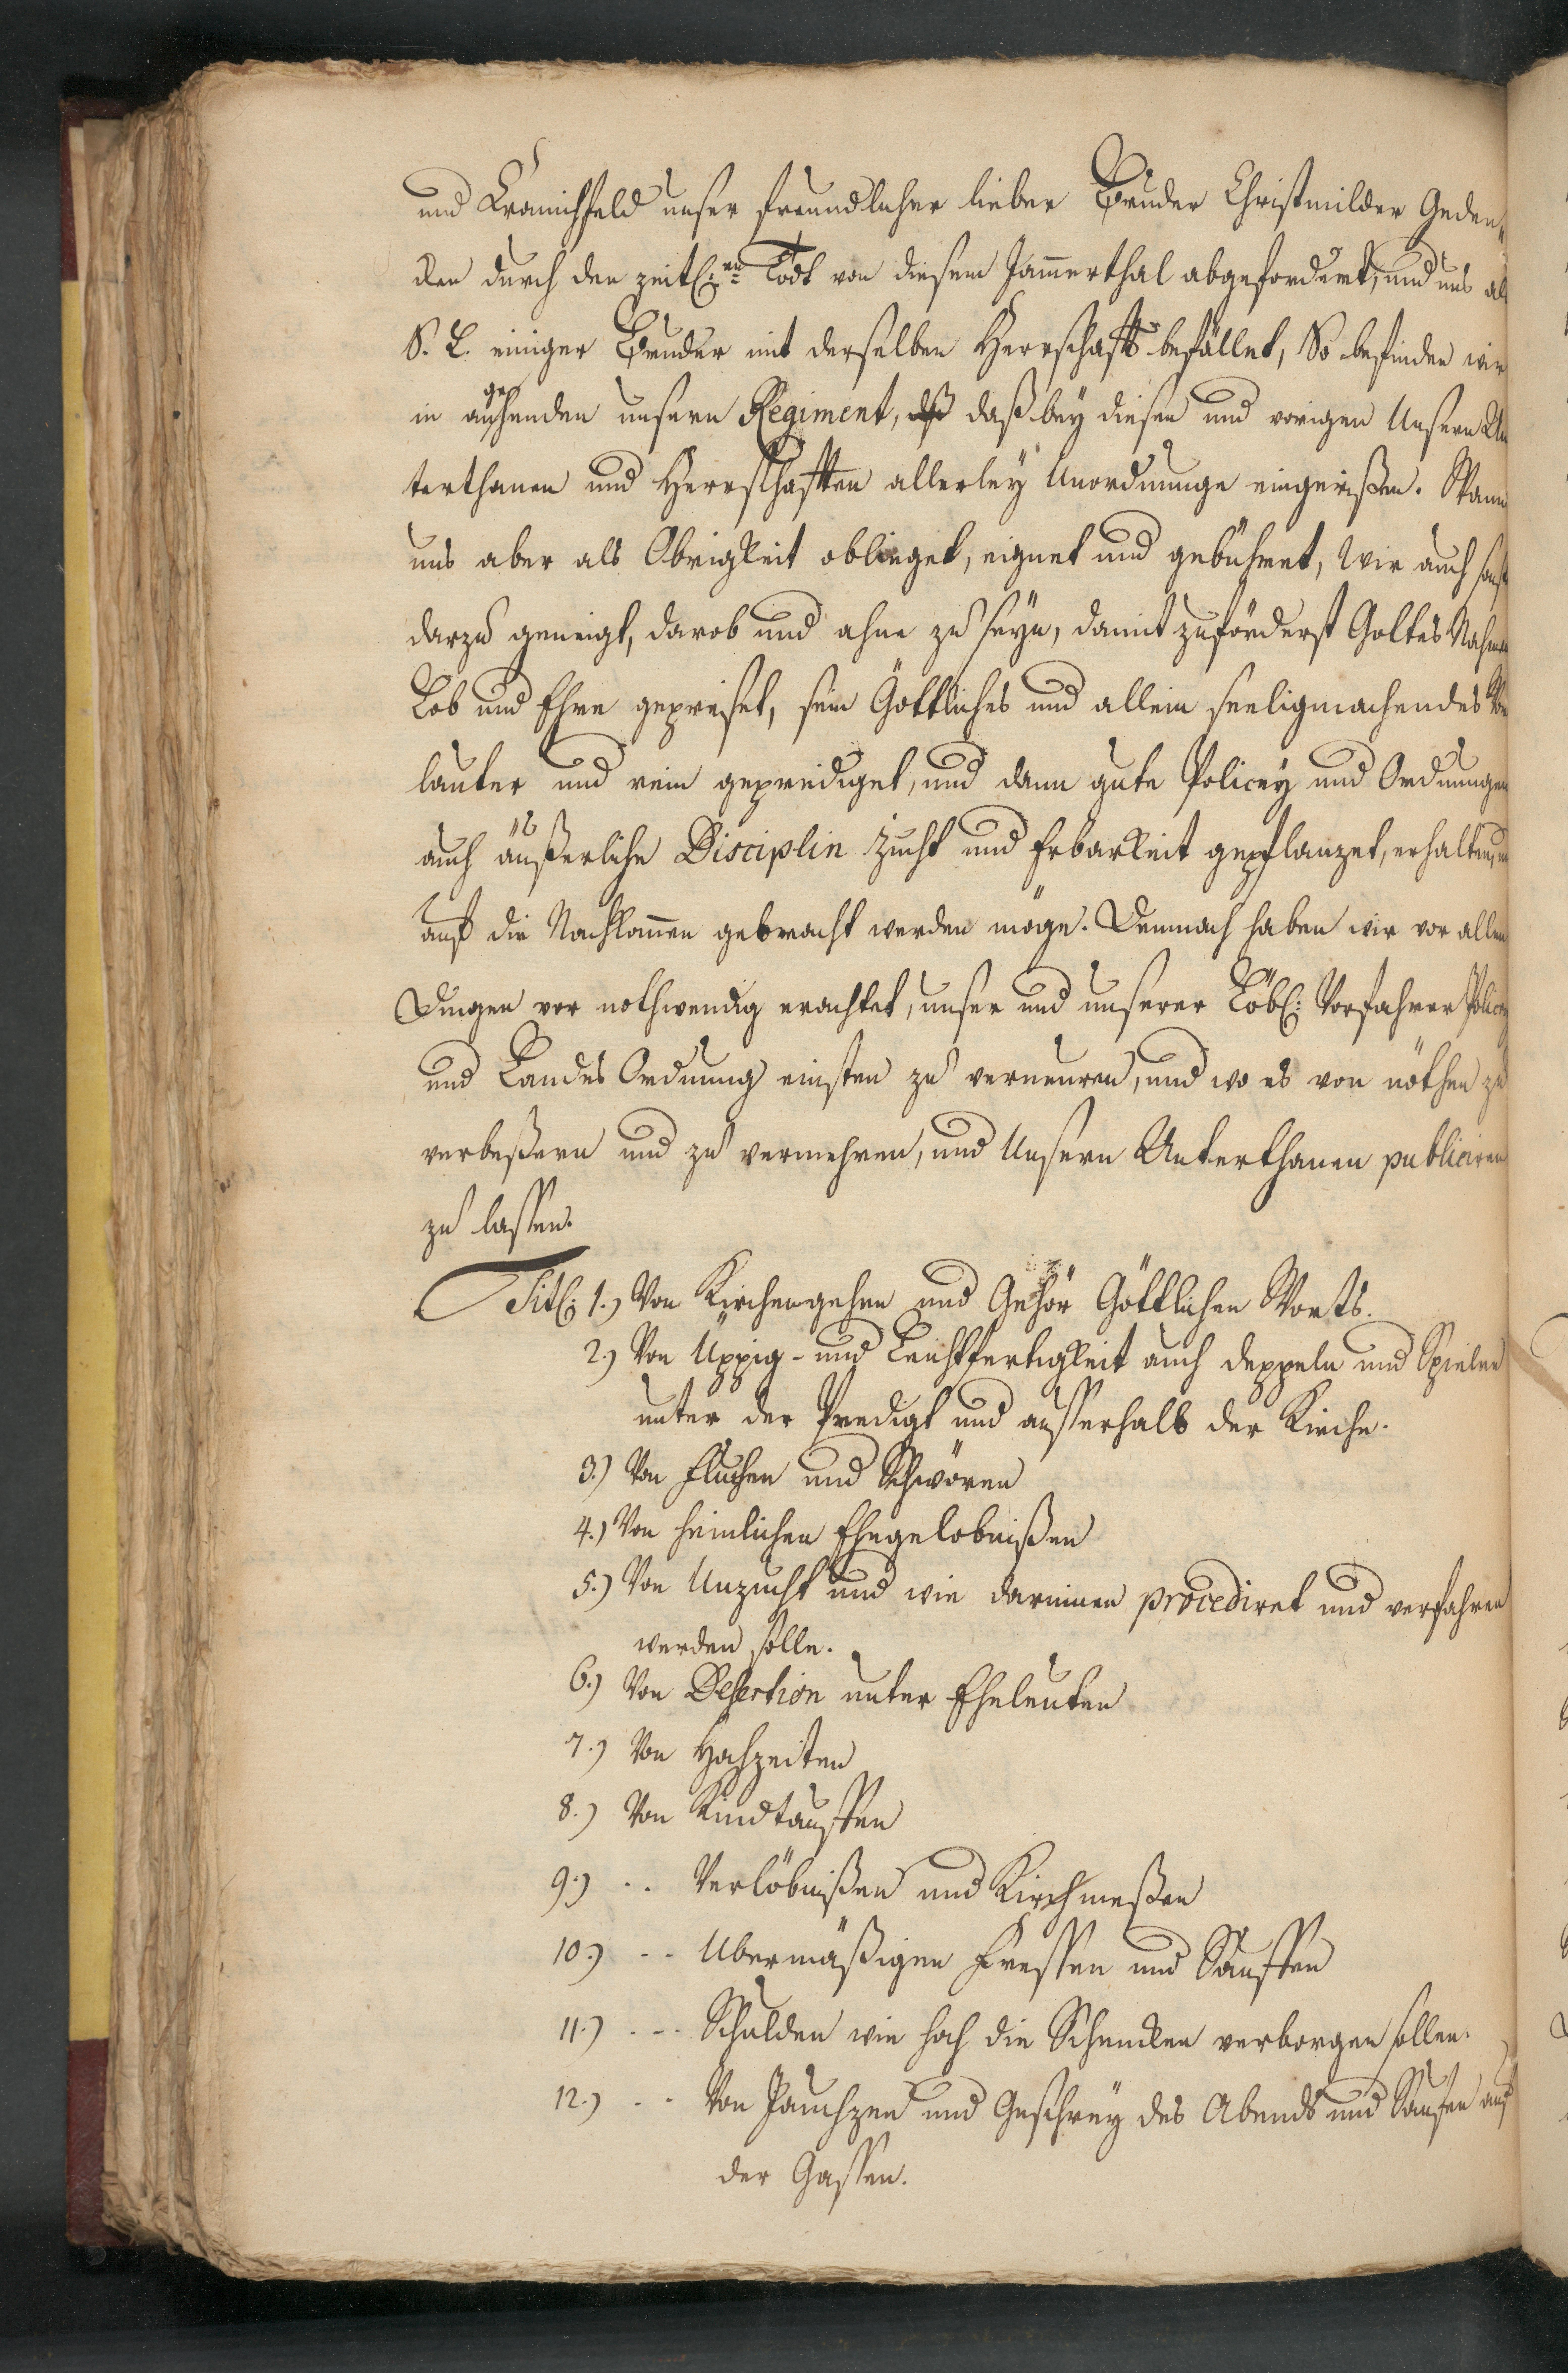 und Kranichfeld unser freundlicher lieber Bruder Christmilder Geden„
cken durch den zeitl:en Todt von diesem Jammerthal abgefordert, und uns als
S. L. einiger Bruder mit derselben Herrschafft befället, So befinden wir
in angehenden unsern Regiment, daß bey diesen und vorigen Unsern Un
terthanen und Herrschafften allerley Unordnunge eingerißen. Wann
uns aber als Obrigkeit oblieget, eignet und gebühret, Wir auch sonst
darzu geneigt, darob und ahne zu seyn, damit zuförderst Gottes Nahmen
Lob und Ehre gepreiset, sein Göttliches und allein seeligmachendes
lauter und rein geprediget, und dann gute Policey und Ordnungen
auch äußerliche Disciplin Zucht und Erbarkeit gepflanzet, erhalten,
auf die Nachkommen gebracht werden möge. Demnach haben wir vor allen
Dingen vor nothwendig erachtet, unser und unserer Löbl: Vorfahren Policey
und Landes Ordnung einsten zu verneuren, und wo es von nöthen zu
verbeßern und zu vermehren, und Unsern Unterthanen publiciren
zu lassen.
Titl: 1.) Von Kirchengehen und Gehör Göttlichen Worts.
2.) Von Üppig- und Leichtfertigkeit auch deppeln und Spielen
unter der Predigt und ausserhalb der Kirche.
3.) Von Fluchen und Schwören
4.) Von heimlichen Ehegelobnißen
5.) Von Unzucht und wie darinnen procediret und verfahren
werden solle.
6.) Von Desertion unter Eheleuten
7.) Von Hochzeiten
8.) Von Kindtauffen
9.) .. Verlöbnißen und Kirchmeßen
10.) -- Ubermäßigen Fressen und Sauffen
11.) --- Schulden wie hoch die Schencken verborgen sollen.
12.) -- Von Jauchzen und Geschrey des Abends und Saufen auf
der Gassen.